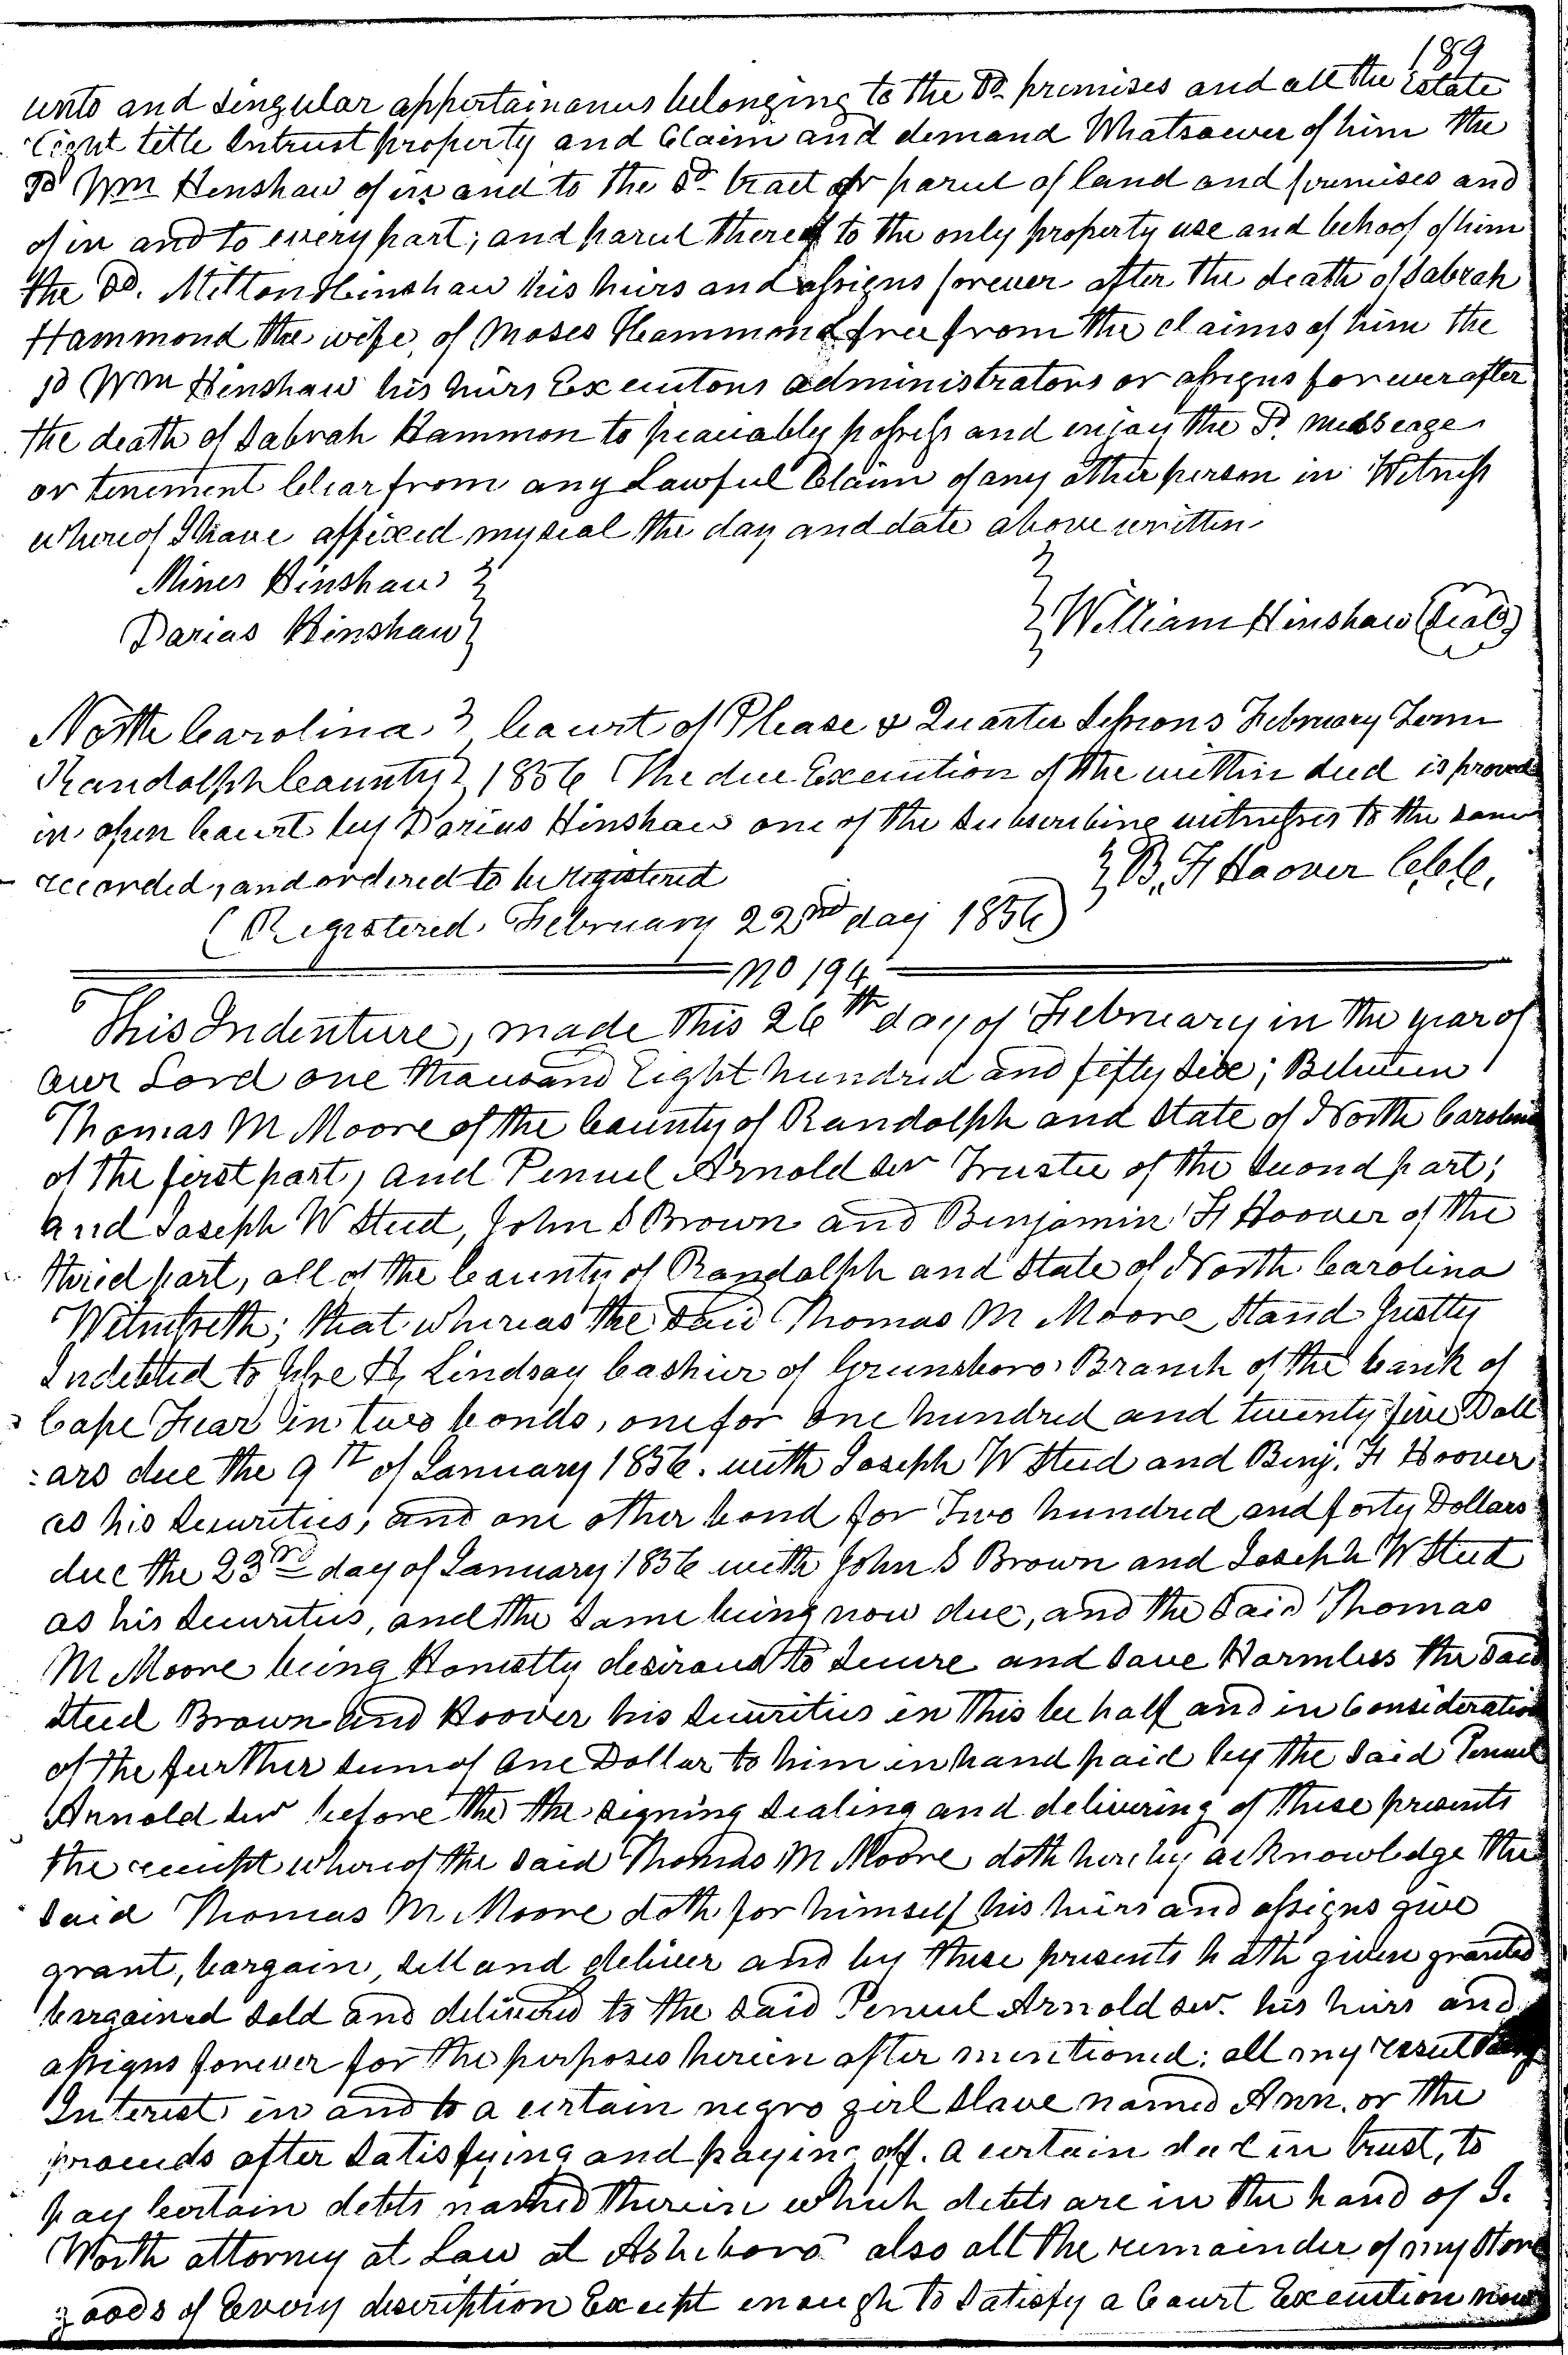 189
unto and singular appertainanus belonging to the Sd. premises and all the Estate
right title Intrust property and Claim and demand Whatsoever of him the
sd Wm Henshaw of in and to the Sd. tract or parcel of land and premises and
of in and to every part; and parcel thereof to the only property use and behoof of him
the Sd. Milton Hinshaw his heirs and assigns forever after the death of Sabrah
Hammond the wife, of Moses Hammond free from the claims of him the
sd Wm Hinshaw his heirs Executons administrators or assigns forever after
the death of Sabrah Hammon to peaciably possess and enjoy the Sd. messeage
or tenement Clear from any Lawful Claim of any other person in Witness
whereof I have affixed my seal the day and date above written
Mines Hinshaw
Darias Hinshaw
William Hinshaw (Seal)
North Carolina Court of Please & Quarter Sessions February Term
Randolph County 1856 The due Execution of the within deed is proved
in open Court by Darius Hinshaw one of the Subscribing witnesses to the same
recorded, and ordered to be registered
B. F Hoover C.C.C.
(Registered February 22nd day 1856)
No 194
This Indenture, made this 26th day of February in the year of
our Lord one thousand Eight hundred and fifty six; Between
Thomas M Moore of the County of Randolph and State of North Carolina
of the first part, and Penuel Arnold Senr Trustee of the Second part;
and Joseph W Steed, John S Brown and Benjamin F Hoover of the
third part, all of the County of Randolph and State of North Carolina
Witnesseth; that whereas the Said Thomas M Moore Stand Justly
Indebted to Jesse H, Lindsay Cashier of Greensboro Branch of the bank of
Cape Fear in two bonds, one for One hundred and twenty five Doll
:ars due the 9th of January 1856. with Joseph W Steed and Benj. F Hoover
as his Securities, and one other bond for Two hundred and forty Dollars
due the 23rd day of January 1856 with John S Brown and Joseph W Steed
as his Securities, and the Same being now due, and the Said Thomas
M Moore being Honestly desirous to Secure and Save Harmless the Said
Steed Brown and Hoover his Securities in this behalf and in Consideration
of the further Sum of One Dollar to him in hand paid by the Said Penuel
Arnold Senr before the the signing Sealing and delivering of these presents
the receipt whereof the Said Thomas M Moore doth hereby acknowledge the
Said Thomas M. Moore doth for himself his heirs and assigns give
grant, bargain, Sell and deliver and by these presents hath given granted
bargained Sold and delivered to the Said Penuel Arnold Senr. his heirs and
assigns forever for the perposes herein after mentioned; all my
Interest in and to a certain negro girl Slave named Ann. or the
proceeds after Satisfying and paying off. a certain deed in trust, to
pay Certain debts named therein which debts are in the hand of J.
Worth attorney at Law at Asheboro also all the remainder of my Store
goods of Every description Except enough to Satisfy a Court Execution now